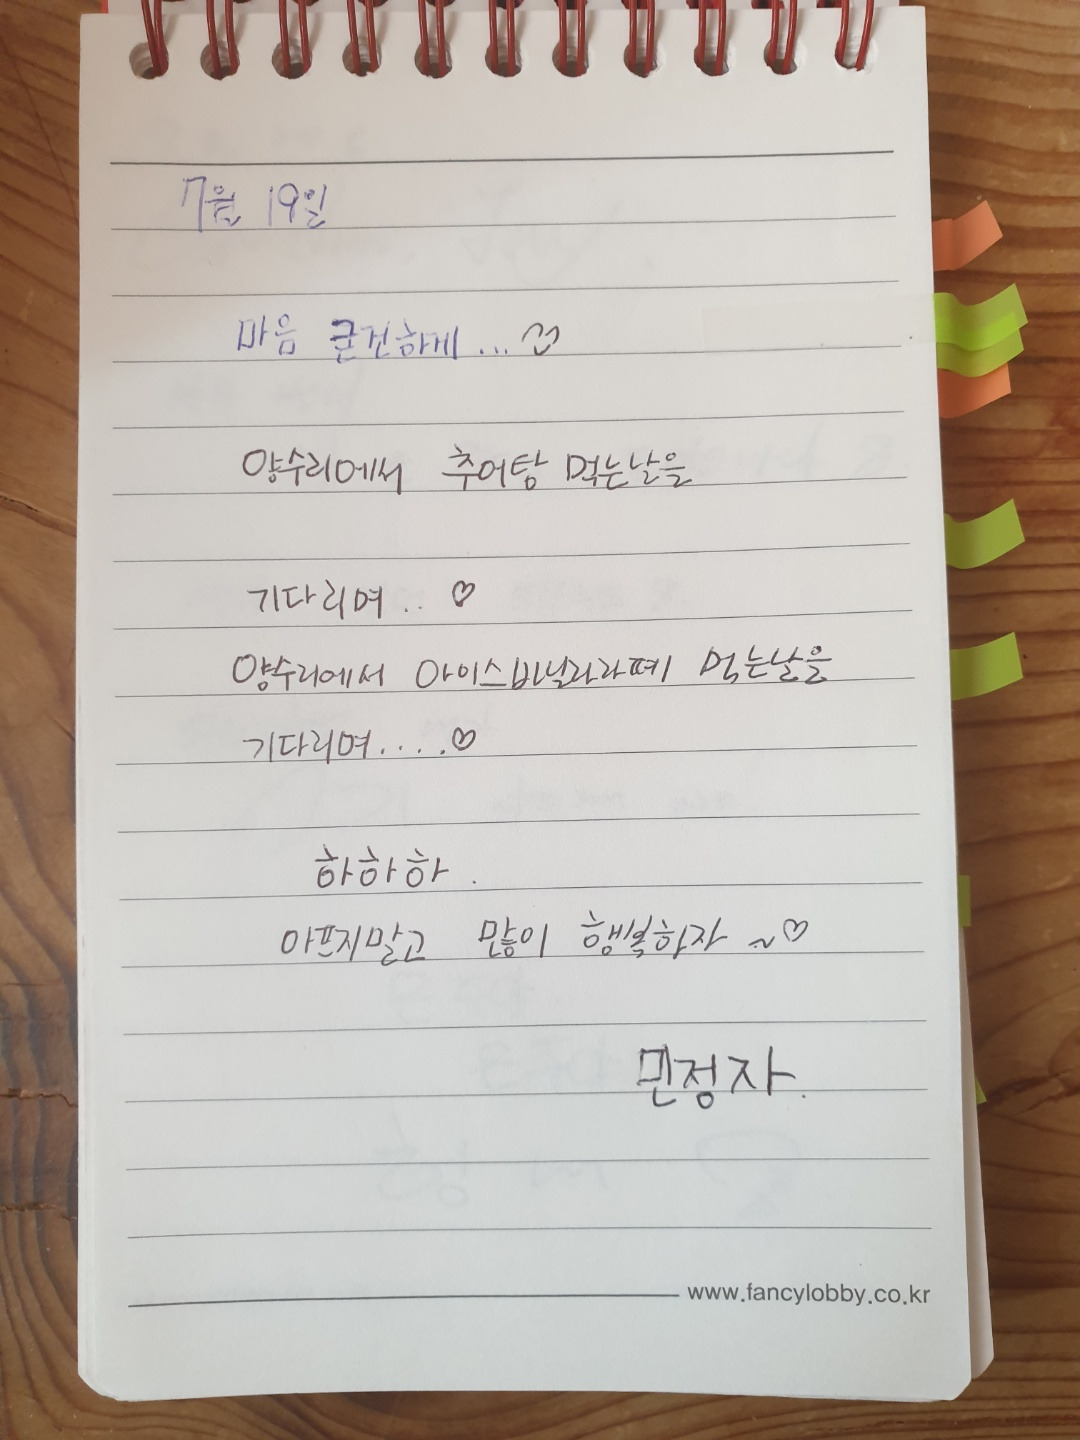 7월 19일
마음 굳건하게...
양수리에서 추어탕 먹는날을
기다리며.. ♡
양수리에서 아이스바닐라라떼 먹는날을
기다리며....♡
하하하.
아프지말고 많이 행복하자 ~♡
민정자.
www.fancylobby.co.kr